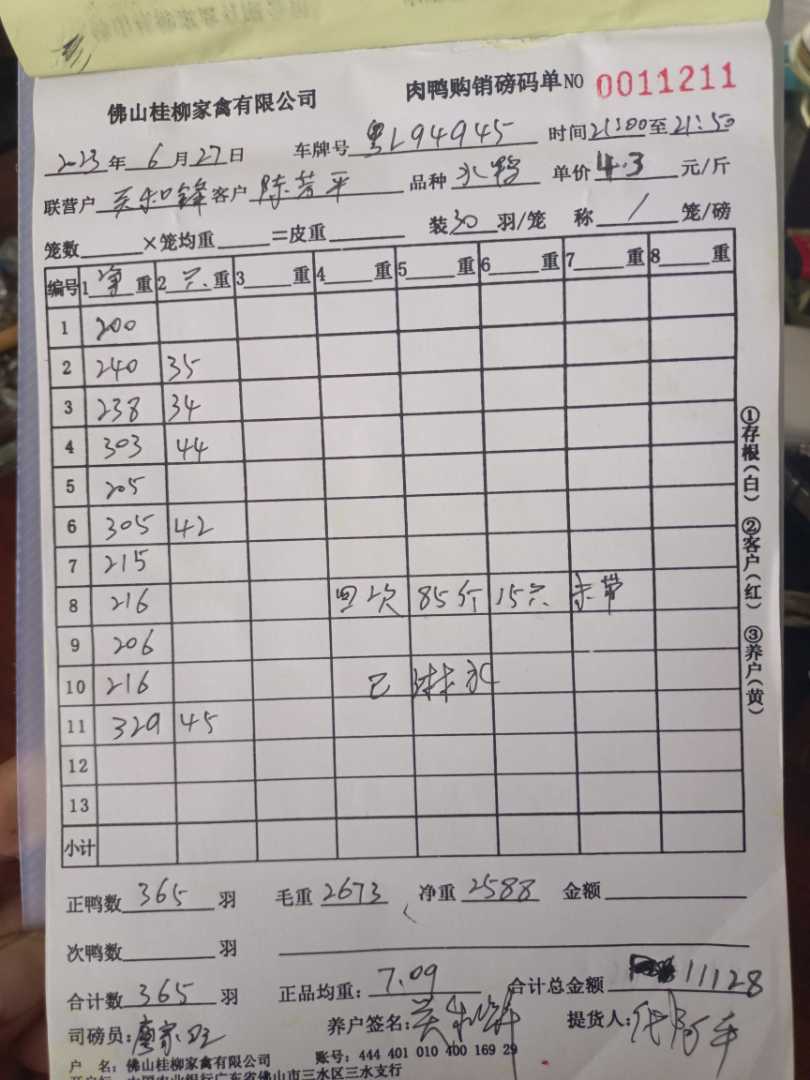 佛山桂柳家禽有限公司 肉鸭购销磅码单 NO 0011211
2023年6月27日 车牌号 粤L94945 时间21:00至21:50
联营户 客户 陈芳平 品种 水鸭 单价 4.3 元/斤
笼数 ×笼均重 =皮重 装30羽/笼 称 / 笼/磅
编号 1 净 重 2 只 重 3 重 4 重 5 重 6 重 7 重 8 重
1 200
2 240 35
3 238 34
4 303 44
5 205
6 305 42
7 215
8 216 四次 85斤 15只 未带
9 206
10 216 已 淋水
11 329 45
12
13
小计
①存根(白) ②客户(红) ③养户(黄)
正鸭数 365 羽 毛重 2673 净重 2588 金额
次鸭数 羽
合计数 365 羽 正品均重: 7.09 合计总金额 11128
司磅员: 养户签名: 提货人:
户 名: 佛山桂柳家禽有限公司 账号: 444 401 010 400 169 29
中国农业银行广东省佛山市三水区三水支行